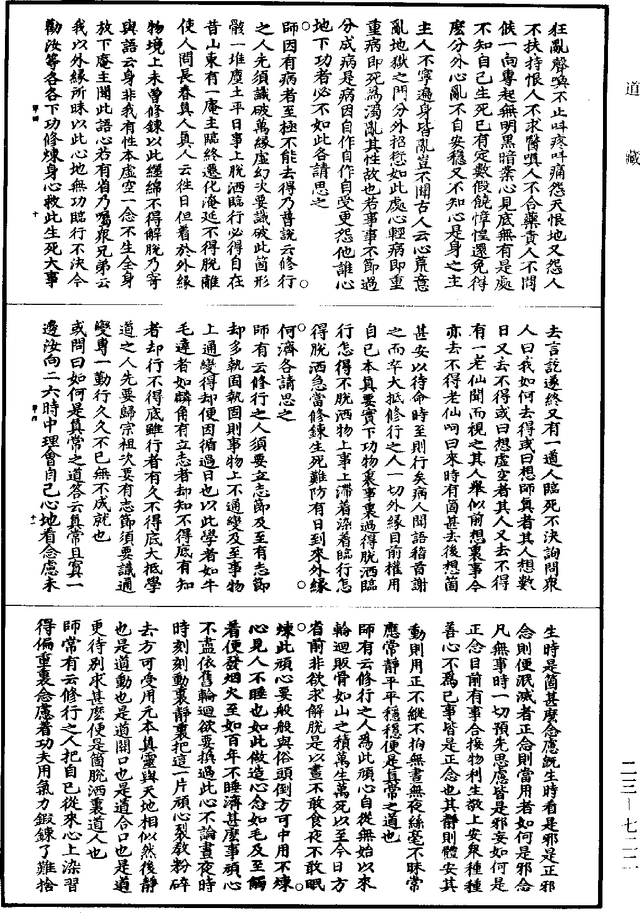 道藏
狂亂聲喚不止呌疼呌痛怨天恨地又怨人
不扶持恨人不求醫嗔人不合藥責人不問
候一向專起無明黑暗業心見底無有是處
不知自己生死已有定數假饒悼惶還免得
麼分外心亂不自安穩又不知心是身之主
主人不寧遍身皆亂豈不聞古人云心荒意
亂地獄之門分外招愆如此處心輕病即重
重病即死為濁亂其性故也若事事不節過
分成病是病因自作自作自受更怨他誰心
地下功者必不如此各請思之
師因有病者至極不能去得乃普說云修行
之人先須識破萬緣虛幻次要識破此箇形
骸一堆塵土平日事上脫洒臨行必得自在
昔山東有一庵主臨終遷化淹延不得脫離
使人問長春真人真人云往日但着於外緣
物境上未曾修鍊以此纏綿不得解脫乃寄
與語云身非我有性本虛空一念不生全身
放下庵主聞此語心若有省乃囑衆兄弟云
我以外緣所昧以此心地無功臨行不決今
勸汝等各各下功修煉身心救此生死大事
去言說遂終又有一道人臨死不決詢問衆
人曰我如何去得或曰想師真者其人想數
日又去不得或曰想虛空者其人又去不得
有一老仙聞而視之其人舉似前想裏事今
亦去不得老仙呵曰來時有箇甚去後想箇
甚安以待命時至則行矣病人聞語稽首謝
之而卒大抵修行之人一切外緣目前權用
自己本真要實下功物裏事裏過得脫洒臨
行怎得不脫洒物上事上滯着染着臨行怎
得脫洒急當修鍊生死難防有日到來外緣
何濟各請思之
師有云修行之人須要立志節及至有志節
却多執固執固則事物上不通變及至事物
上通變得却便因循過日也以此學者如牛
毛達者如麟角有立志者却知不得底有知
者却行不得底雖行者有久不得底大抵學
道之人先要歸宗祖次要有志節須要識通
變專一勤行久久不已無不成就也
或問曰如何是真常之道答云真常且寘一
邊汝向二六時中理會自己心地看念慮未
生時是箇甚麼念慮既生時看是邪是正邪
念則便泯滅者正念則當用者如何是邪念
凡無事時一切預先思慮皆是邪妄如何是
正念目前有事合接物利生敬上安衆種種
善心不為己事皆是正念也其靜則體安其
動則用正不縱不拘無晝無夜絲毫不昧常
應常靜平平穩穩便是真常之道也
師有云修行之人為此頑心自從無始以來
輪迴販骨如山之積萬生萬死以至今日方
省前非欲求解脫是以晝不敢食夜不敢眠
煉此頑心要般般與俗頭倒方可中用不煉
心見人不睡也如此做造心念如毛及至觸
着便發烟火至如百年不睡濟甚麼事頑心
不盡依舊輪迴欲要換過此心不論晝夜時
時刻刻動裏靜裏把這一片頑心裂教粉碎
去方可受用元本真靈與天地相似然後靜
也是道動也是道開口也是道合口也是道
更待別求甚麼便是箇脫洒裏道人也
師常有云修行之人把自己從來心上染習
得偏重裏念慮着功夫用氣力鍛鍊了難捨
二三—七二二